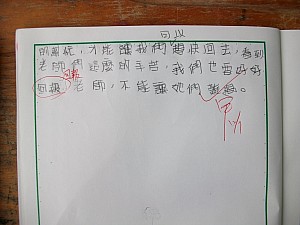 的車位,才能讓我們趕快回去,看到
老師們這麼的辛苦,我們也要好好
回報
回報老師,不能讓她們難過。